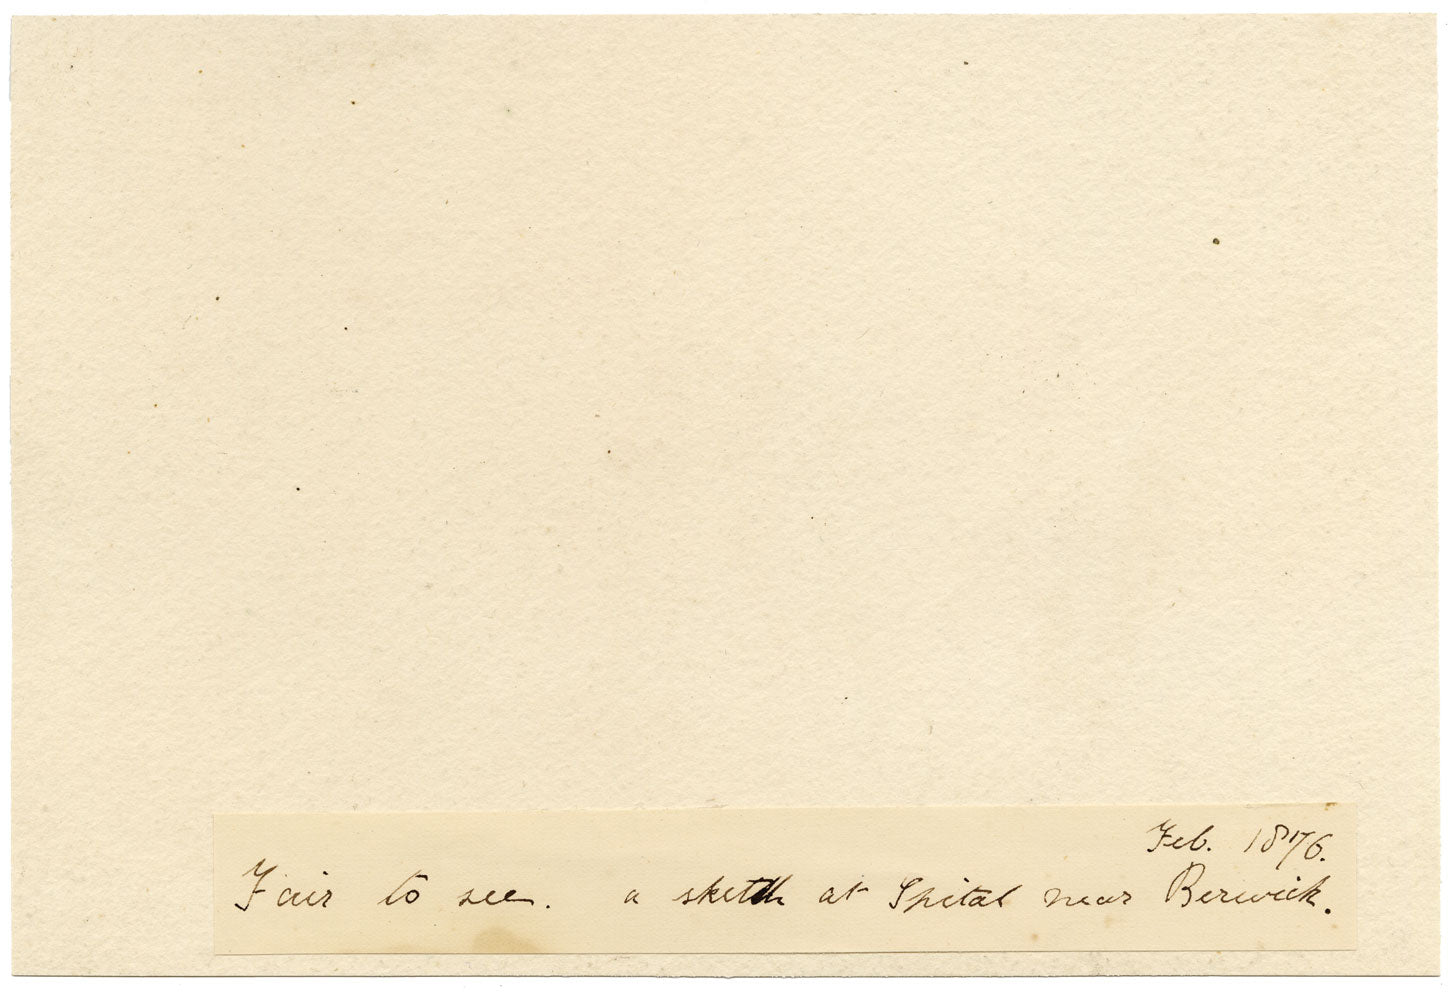 Feb. 1876.
Fair to see. a sketch at Spital near Berwick.